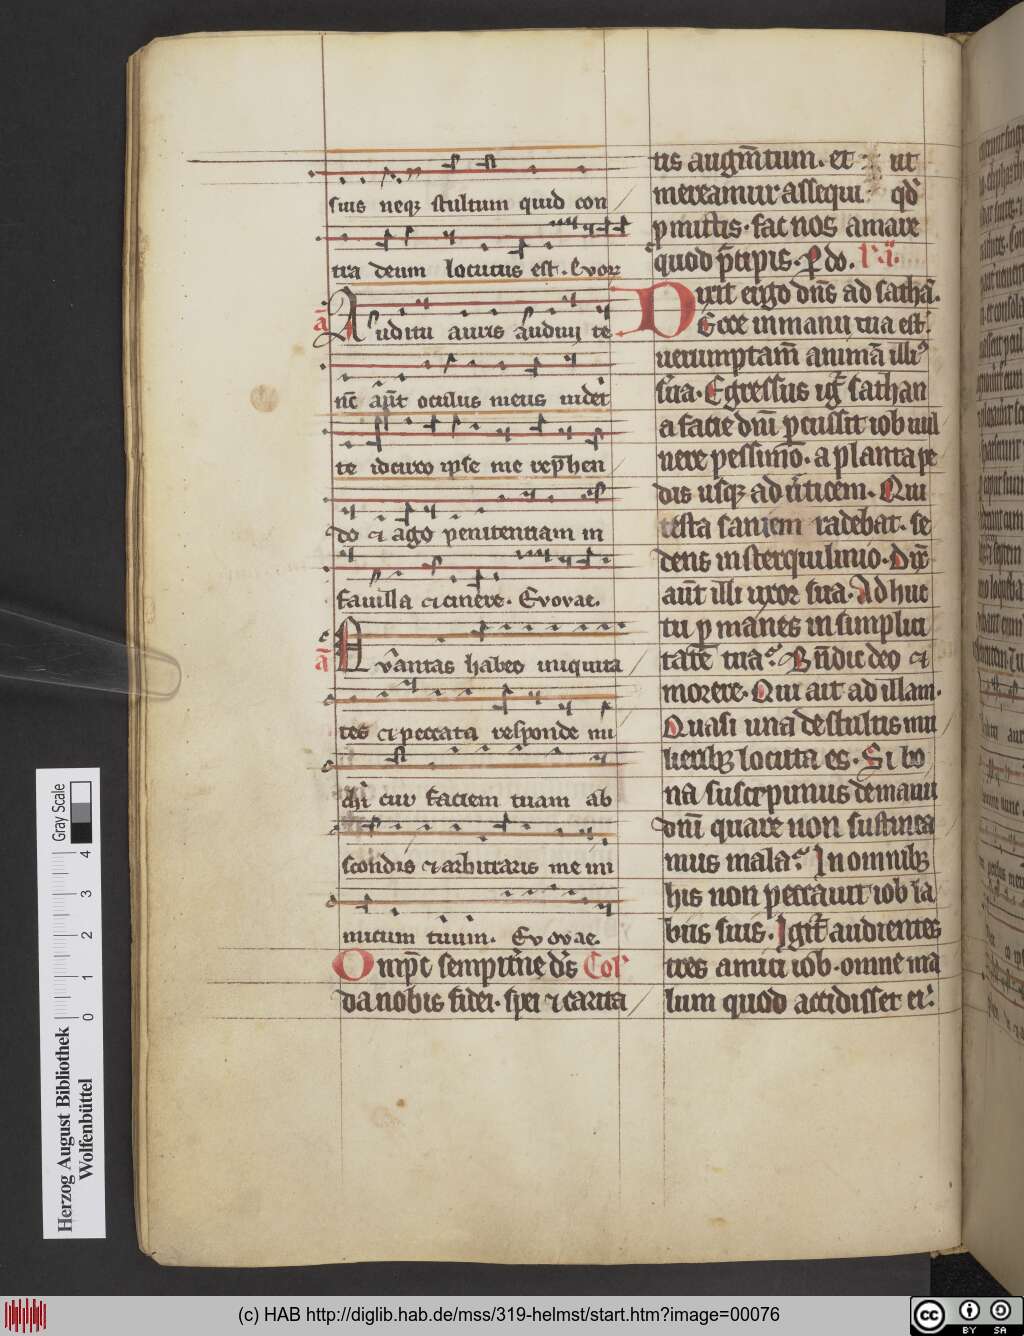 suis neqꝫ stultum quid con
tra deum locutus est. Evovae
a̅ Auditu auris audiui te
nc̅ au̅t oculus meus uidet
te idcirco ipse me rep̅hen
do et ago penitentiam in
fauilla et cinere. Evovae.
a̅ Qua̅ntas habeo iniquita
tes et peccata responde mi
chi cur faciem tuam ab
scondis et arbitraris me ini
micum tuum. Evovae.
Omp̅s sempit̅ne ds̅ Col̅
da nobis fidei. spei et carita
tis augm̅tum. et ut
mereamur assequi qd̅
p̱mittis. fac nos amare
quod p̅cipis. P̱ do. Fa̅.
Dixit ergo dn̅s ad satha̅.
Ecce in manu tua est.
uerumptam̅ anima̅ illiꝰ
s̅ua. Egressus ig̅ sathan
a facie dn̅i p̱cussit iob uul
nere pessimo. a planta pe
dis usqꝫ ad u̅ticem. Qui
testa saniem radebat. se
dens in sterquilinio. Dix̅
au̅t illi uxor sua. Ad huc
tu p̱manes in simplici
tate̅ tua? Bn̅dic deo et
morere. Qui ait ad illam.
Quasi una de stultis mu
lieribꝫ locuta es. Si bo
na suscepimus de manu
dn̅i quare non sustinea
mus mala? In omnibꝫ
his non peccauit iob la
biis suis. Igit̅ audientes
tres amici iob. omne ma
lum quod accidisset ei.
Gray Scale
0 1 2 3 4
Herzog August Bibliothek
Wolfenbüttel
(c) HAB http://diglib.hab.de/mss/319-helmst/start.htm?image=00076
cc BY SA